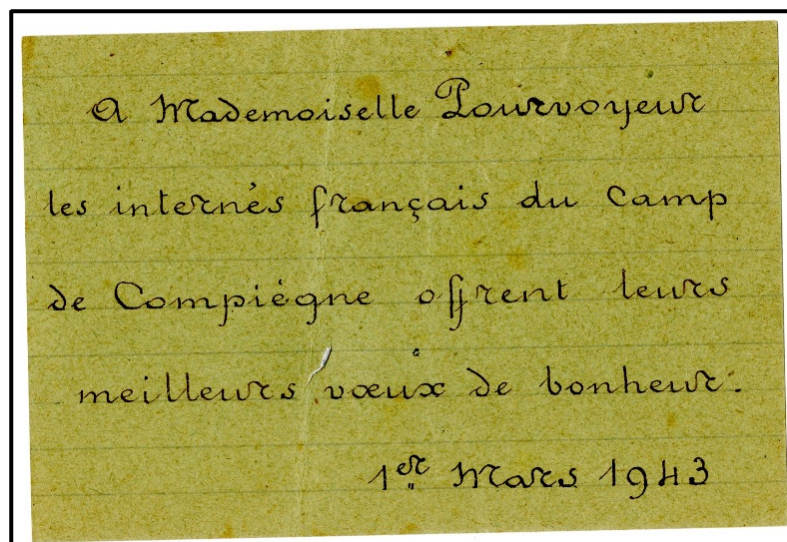 A Mademoiselle Pourvoyeur
les internés français du Camp
de Compiègne offrent leurs
meilleurs vœux de bonheur.
1er Mars 1943